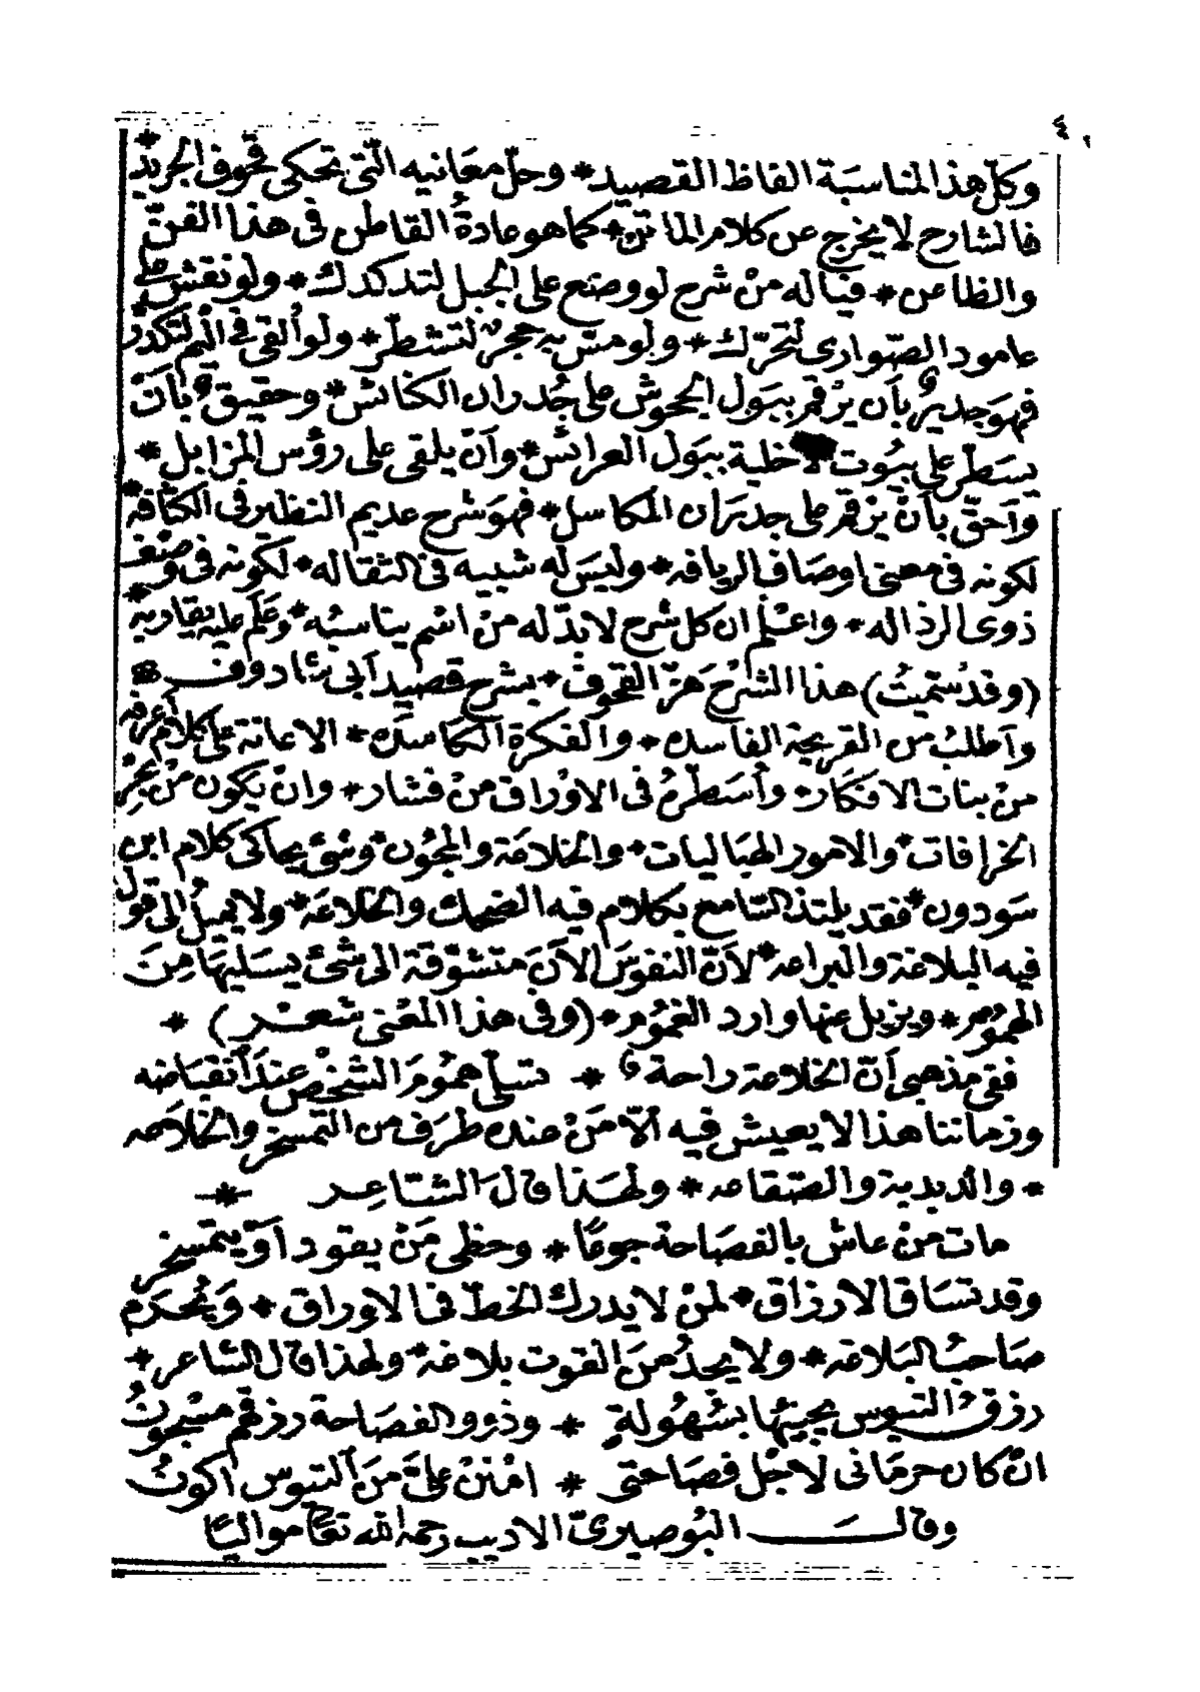 ٤
وكل هذا لمناسبة الفاظ القصيد * وحلّ معَانيه الّتى تحكى قحوف الجريد *
فالشارح لا يخرج عن كلام الماتن * كما هو عادةُ القاطن فى هذا الفنّ
والظاعن * فياله منْ شرح لو وضع على الجبل لتدكدك * ولو نقش على
عامود الصّوارى لتحرّك * ولو مسّ به حجرٌ لتشطّر * ولو ألقى فى اليم لتكدّر *
فهوَ جديرٌ بأن يرْقم ببول الجحوش على جُدران الكنائس * وحقيقٌ بأنّ
يسَطّر على بيُوت الاخلية ببَول العرائس * وأنْ يلقى على رؤس المزابل *
وأحقّ بأنْ يرْقم على جدرَان المكاسل * فهوَ شرح عديم النظير فى الكثافة *
لكونه فى معنى اوصَاف الريافه * وليسَ له شبيه فى الثقاله * لكونه فى وصْف
ذوى الرذاله * واعْلم ان كل شرح لا بدّ له منْ اسْم يناسبُه * وعَلَم عليه يقاربه *
(وقد سمّيتُ) هذا الشرْحَ هَزّ القحوفْ * بشرح قصيد أبى شادوف
وأطلبُ من القريحة الفاسده * والفكرة الكاسدَه * الاعانة على كلام أعرفه
منْ بنات الافكار * وأسَطّرهُ فى الاوْراق منْ فشار * وانْ يكون منْ بحْر
الخرافات * والامور الهبَاليات * والخلاعَة والمجُون * وشئ يحاكى كلام ابن
سَودون * فقد يلتذ السّامع بكلام فيه الضحك والخلاعَة * ولا يميلُ الى قول
فيه البلاغة والبراعه * لأنّ النفوسَ الآنَ متشوّقة الى شئ يسَليهَا منَ
الهمُوم * ويزيل عنها وارد الغمُوم * (وفى هذا المعْنى شعْر) *
ففى مذهبى أنّ الخلاعة راحة * تسلّى همُومَ الشخْصِ عندَ أنقباضه
وزماننا هذا لا يعيش فيه الاّ مَنْ عنده طرَف من التمسخر والخلاعه
* والدبدبة والصّقاعه * ولهَذا قالَ الشّاعِر *
مات منْ عاش بالفصَاحة جوعًا * وحظى مَنْ يقود أوْ يتمسخر
وقد تسَاق الارزاق * لمنْ لا يدرك الخطّ فى الاوراق * وَيُحرَم
صَاحبُ البَلاغه * ولا يجدُ منَ القوت بلاغه * ولهذا قال الشاعر *
رزقُ التيوس يجيئها بسُهُولةٍ * وذوو الفصَاحة رزقهُم مسْجُونُ
انْ كان حرمَانى لاجْل فصَاحتى * امْننْ علىَّ منَ التيوس أكونُ
وقال البُوصيرىّ الاديب رحمه الله تعَالى مواليّا